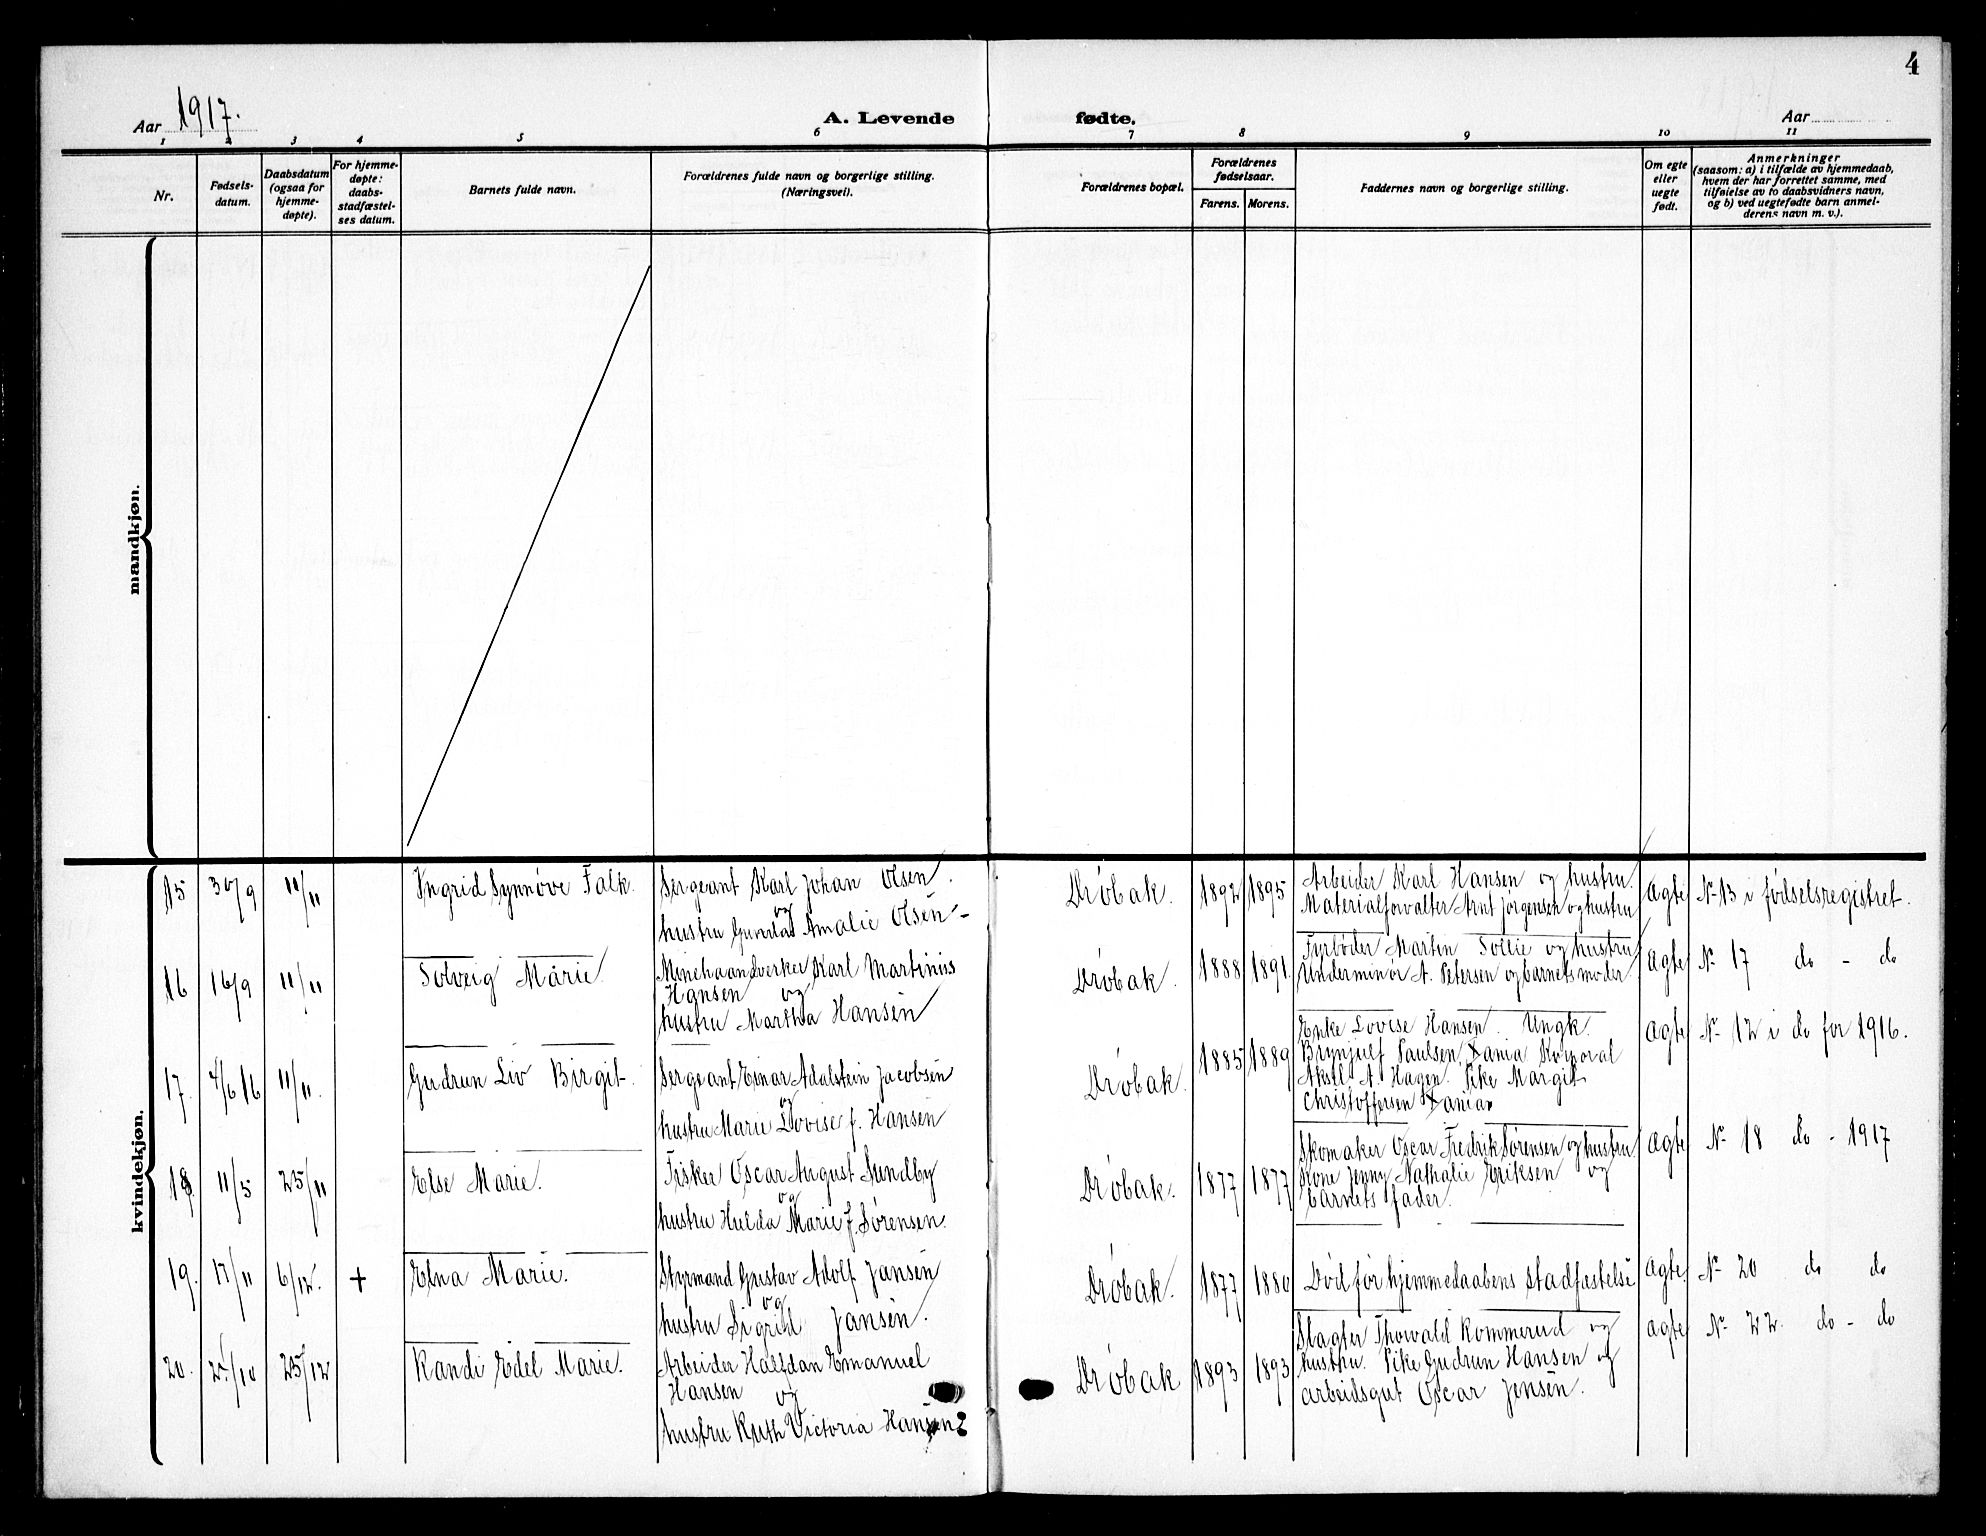 4
Aar 1917.
A. Levende fødte.
Aar
1 2 3 4 5 6 7 8 9 10 11
Nr.
Fødsels-
datum.
Daabsdatum
(ogsaa for
hjemme-
døpte).
For hjemme-
døpte:
daabs-
stadfæstel-
ses datum.
Barnets fulde navn.
Forældrenes fulde navn og borgerlige stilling.
(Næringsvei).
Forældrenes bopæl.
Forældrenes
fødselsaar.
Farens. Morens.
Faddernes navn og borgerlige stilling.
Om egte
eller
uegte
født.
Anmerkninger
(saasom: a) i tilfælde av hjemmedaab,
hvem der har forrettet samme, med
tilføielse av to daabsvidners navn,
og b) ved uegtefødte barn anmel-
derens navn m. v.).
mandkjøn.
kvindekjøn.
15 30/9 11/11
Ingrid Synnøve Falk.
Sergeant Karl Johan Olsen.
og
hustru Amalie Olsen
Drøbak. 1892 1895
Arbeider Karl Hansen og hustru.
Materialforvalter Arnt Jørgensen og hustru
Ægte
Nr 13 i fødselsregistret.
16 16/9 11/11
Solveig Marie
Minehaandverker Karl Martinius
Hansen og
hustru Martha Hansen
Drøbak. 1888 1891.
Fyrbøder Martin Sollie og hustru
Underminør A. Petersen og barnets moder
Ægte
Nr 17 do - do
17. 4/6 16 11/11.
Gudrun Liv Birgit.
Sergeant Einar Adalstein Jacobsen
og
hustru Marie Lovise f. Hansen
Drøbak. 1885 1889
Enke Lovise Hansen. Ungk.
Brynjulf Paulsen Xania Korporal
Aksel A. Hagen. Pike Margit
Christoffersen Xania
Ægte
Nr 12 i do for 1916.
18. 11/5 25/11
Else Marie.
Fisker Oscar August Sundby
og
hustru Hulda Marie f. Sørensen.
Drøbak. 1877 1877
Skomaker Oscar Fredrik Sørensen og hustru
Kone Jenny Nathalie Eriksen og
barnets fader.
Ægte
Nr 18 do - 1917
19. 17/11 6/12. +
Elna Marie.
Styrmand Gustav Adolf Jansen
og
hustru Sigrid Jansen.
Drøbak. 1877 1880
Død før hjemmedaabens stadfæstelse
Ægte.
Nr 20 do do
20. 2/10 25/12
Randi Edel Marie.
Arbeider Halfdan Emanuel
Hansen og
hustru Ruth Victoria Hansen
Drøbak 1893 1893
Slagter Thorvald Kommerud og
hustru. Pike Gudrun Hansen og
arbeidsgut Oscar Jensen.
Ægte
Nr 22. do - do